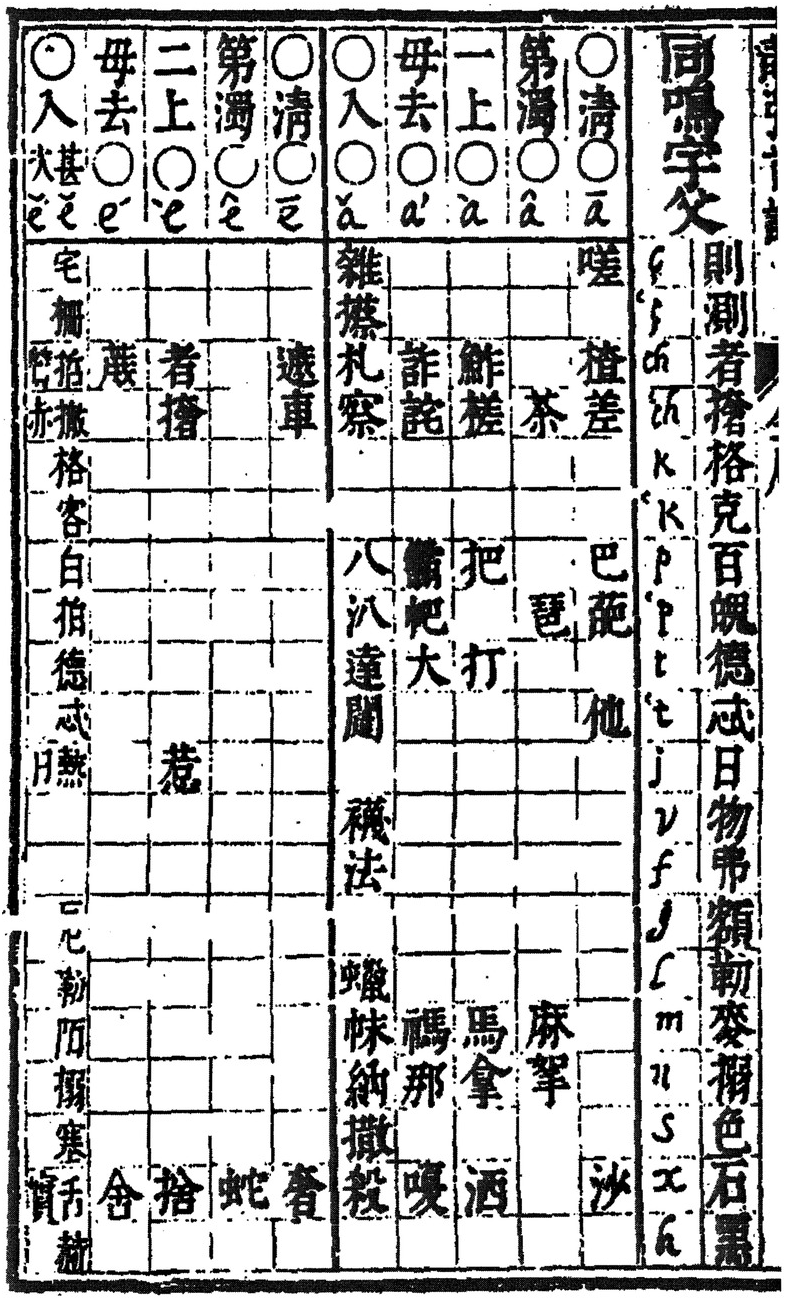 同鳴字父
則測者撦格克百魄德忒日物弗額勒麥搦色石黑
ç ‘ç ch ‘ch k ‘k p ‘p t ‘t j v f g l m n s x h
○清○ā 嗟楂差巴葩他沙
第濁○â 茶琶麻拏
一上○à 鮓槎把打馬拿洒
毋去○á 詐詫帊大禡那嗄
○入○ă 雜攃札察八汃達闥襪法蠟帓納撒殺
○清○ē 遮車奢
第濁○ê 蛇
二上○è 者撦惹捨
毋去○é 蔗舍
○入
甚ĕ 宅柵撤格客白拍德忒熱勒陌搦塞舌赫
次ĕ 赤日實